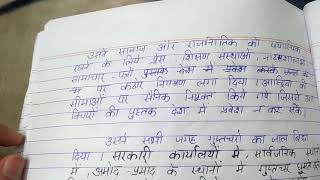 उसने समाज और राजनीतिक को
रखने के लिये प्रेस, शिक्षण संस्थाओं,
समाचार पत्रों पुस्तक
पर कठोर नियंत्रण लगा दिया।
सीमाओं पर सैनिक नियुक्त किये गये जिससे
विचारों की पुस्तक देश में प्रवेश न कर सके।
उसने सभी जगह गुप्तचरों का जाल बिछा
दिया। सरकारी कार्यालयों में, सार्वजनिक
में, आमोद-प्रमोद के स्थानों में गुप्तचर